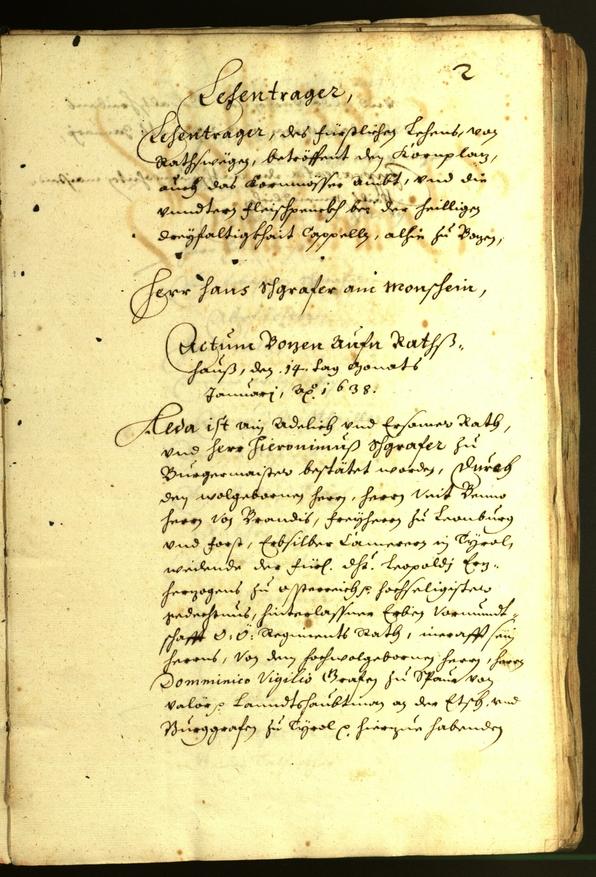 2
Lehentrager,
Lehentrager, des fürstlichen Lehens, von
Rathswegen, betröffent den Kornplaz,
auch das Kornmösser ambt, vnd die
vnndtern fleischpenckh bei der heilligen
dreyfaltigkhait Cappelln, alhie zu Bozen,
Herr Hans Schgrafer am Monschein,
Actum Bozen aufn Rathß-
hauß, den 14. tag Monats
Januarj, Aō. 1638.
Alda ist ain Adelich vnd Ersamer Rath,
vnd herr Hieronimuß Schgrafer zu
Burgermaister bestätet worden, Durch
den wolgebornen herrn, herrn Veit Benno
herrn von Brandis, freyherrn zu Leonburg
vnd Forst, Erbsilber Camerern in Tyrol,
weilende der fürl. dhr. Leopoldj Erz-
herzogens zu Össterreich p. hochseligister
gedechtnus, hinterlassner Erben Vormundt-
schafft O: Ö: Regiments Rath, incrafft
herrns, von dem hochwolgebornen herrn, herrn
Domminico Vigilio Grafen zu Spaur von
Valör p. Lanndtshaubtman an der Etsch, vnd
Burggrafen zu Tyrol p. hierzue habenden